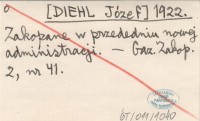 o [DIEHL Józef] 1922.
Zakopane w przededniu nowej
administracji. — Gaz. Zakop.
2, nr 41.